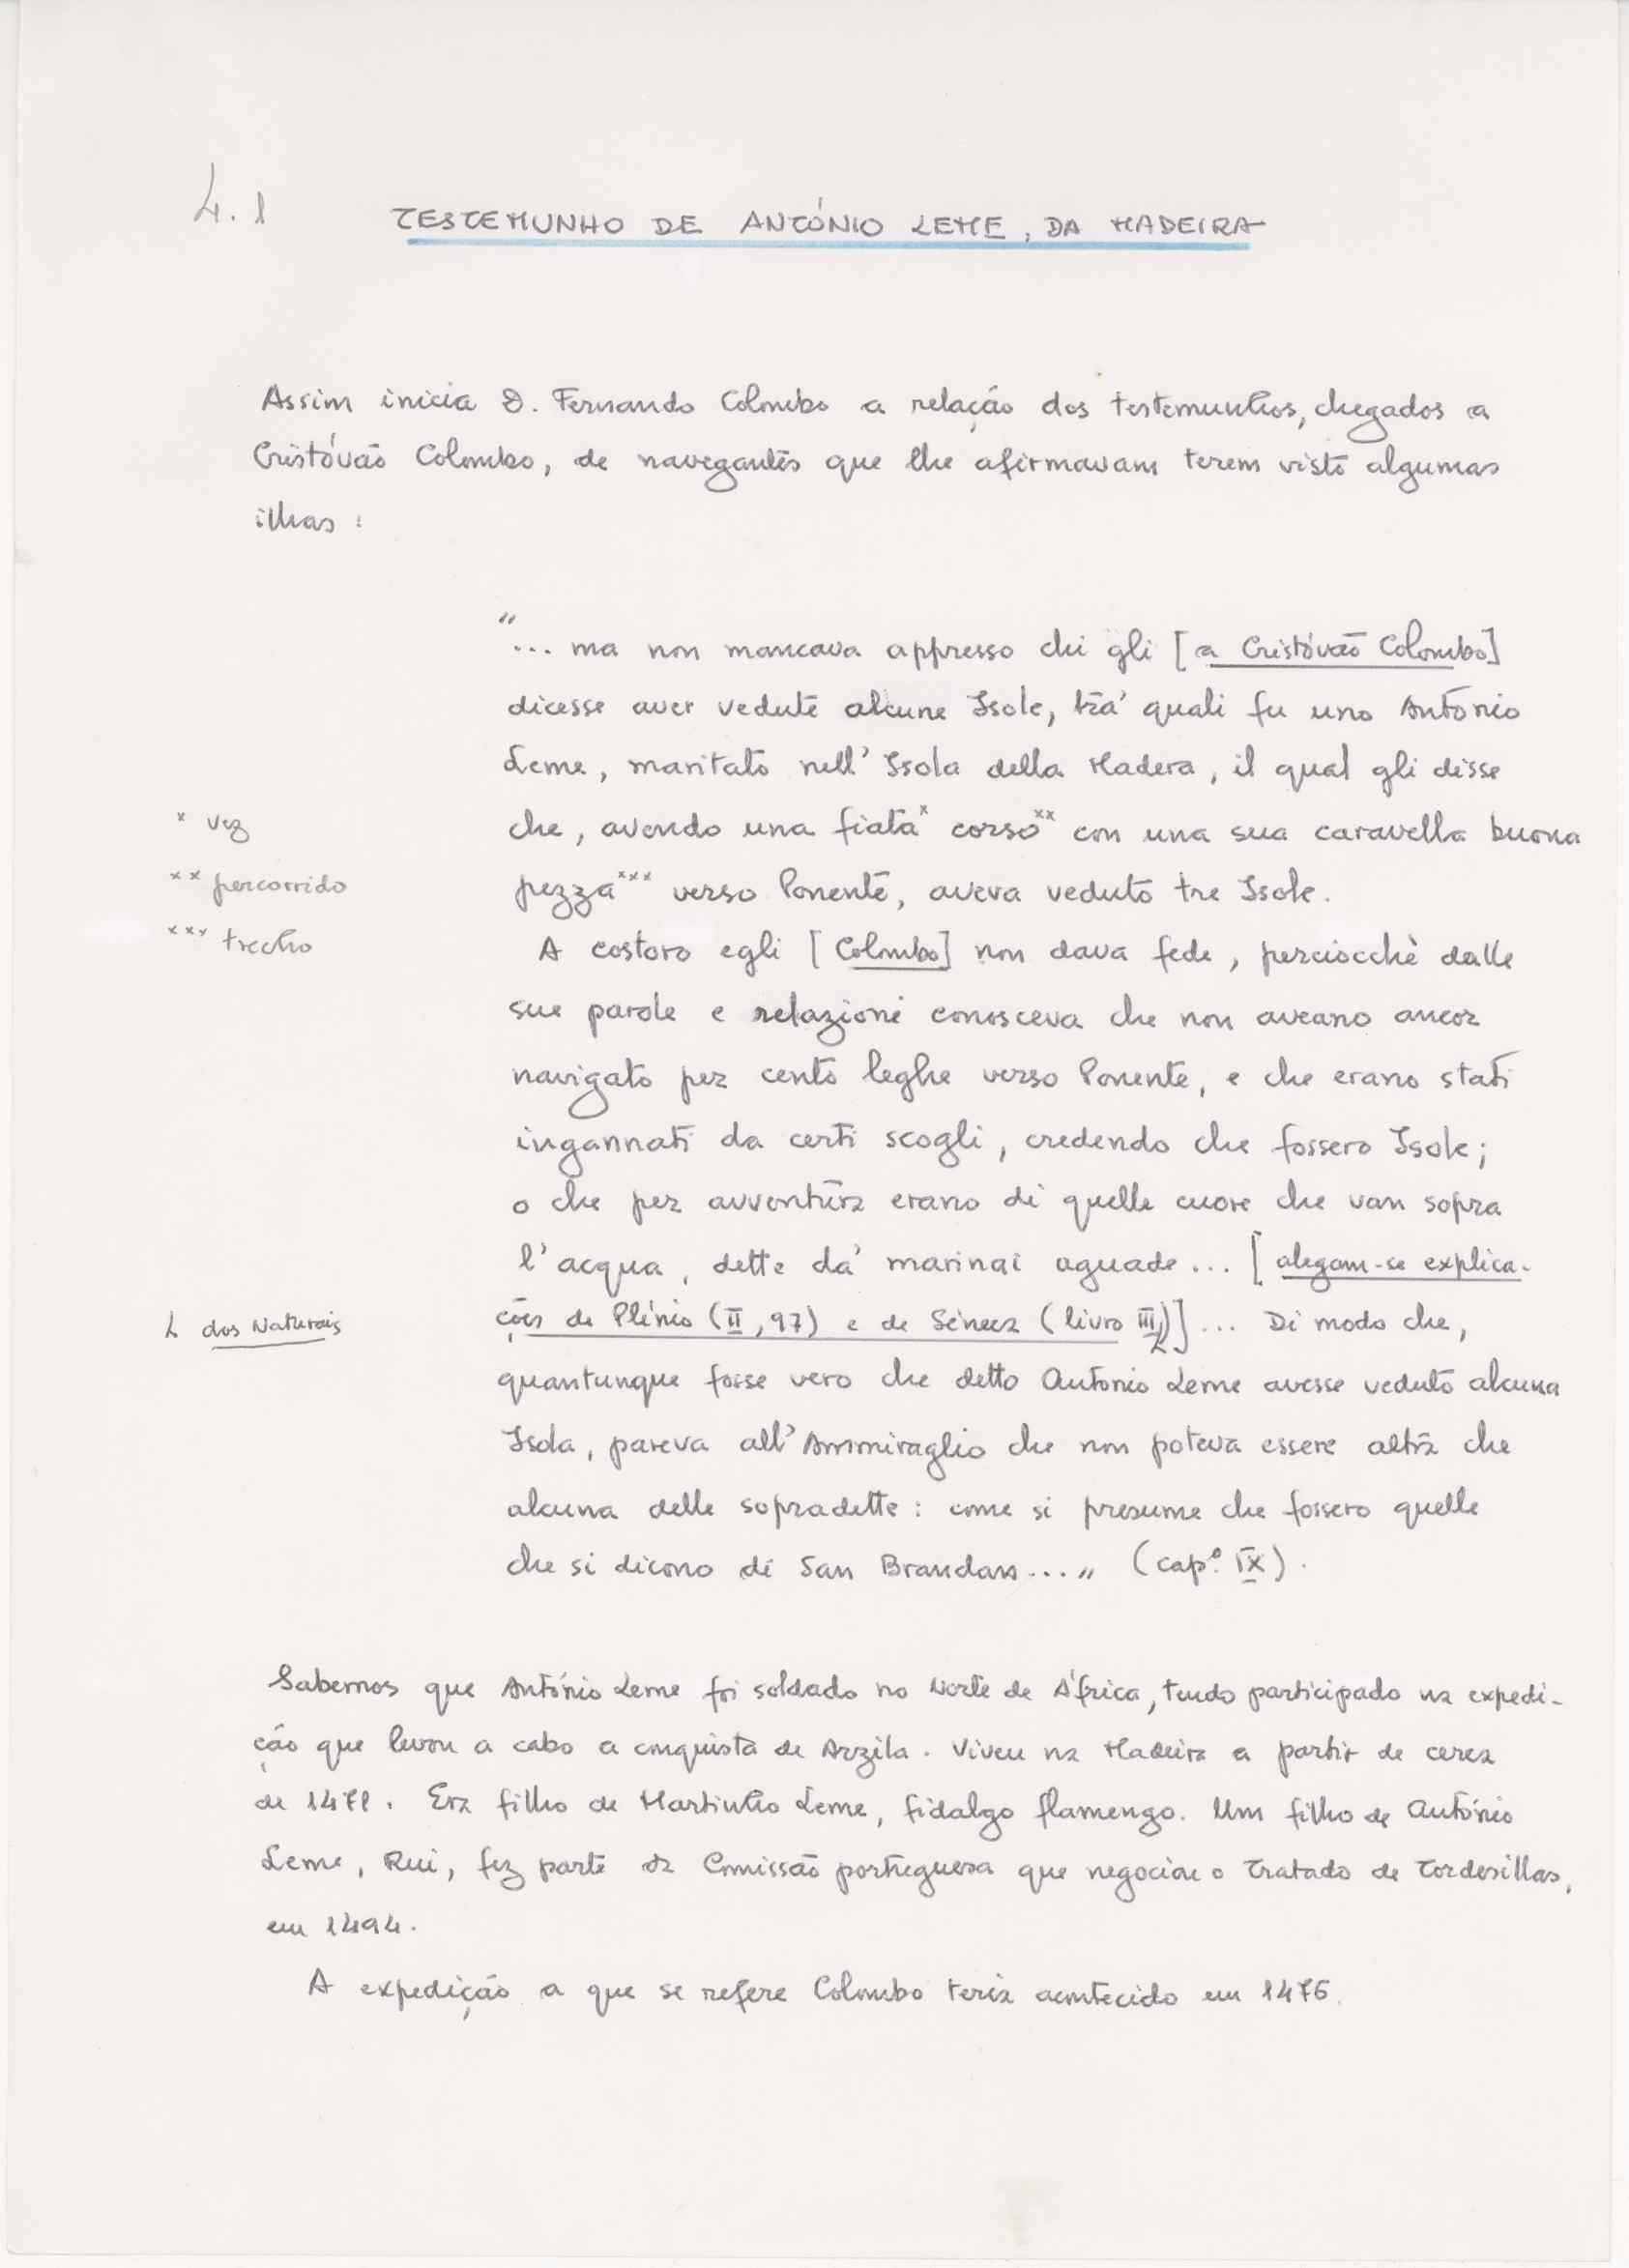 4.1
TESTEMUNHO DE ANTÓNIO LEME, DA MADEIRA
Assim inicia D. Fernando Colombo a relação dos testemunhos, chegados a
Cristóvão Colombo, de navegantes que lhe afirmavam terem visto algumas
ilhas :
"... ma non mancava appresso chi gli [a Cristóvão Colombo]
dicesse aver vedute alcune Isole, tra' quali fu uno Antonio
Leme, maritato nell' Isola della Madera, il qual gli disse
* vez
che, avendo una fiata* corso** con una sua caravella buona
** percorrido
pezza*** verso Ponente, aveva veduto tre Isole.
*** trecho
A costoro egli [Colombo] non dava fede, perciocchè dalle
sue parole e relazioni conosceva che non aveano ancor
navigato per cento leghe verso Ponente, e che erano stati
ingannati da certi scogli, credendo che fossero Isole;
o che per avventura erano di quelle cuore che van sopra
l'acqua, dette da' marinai aguade... [alegam-se explica-
L dos Naturais
ções de Plínio (II, 97) e de Séneca (livro III)]... Di modo che,
quantunque fosse vero che detto Antonio Leme avesse veduto alcuna
Isola, pareva all'Ammiraglio che non poteva essere altra che
alcuna delle sopradette : come si presume che fossero quelle
che si dicono di San Brandan..." (cap.º IX).
Sabemos que António Leme foi soldado no Norte de África, tendo participado na expedi-
ção que levou a cabo a conquista de Arzila. Viveu na Madeira a partir de cerca
de 1471. Era filho de Martinho Leme, fidalgo flamengo. Um filho de António
Leme, Rui, fez parte da Comissão portuguesa que negociou o Tratado de Tordesillas,
em 1494.
A expedição a que se refere Colombo teria acontecido em 1476.